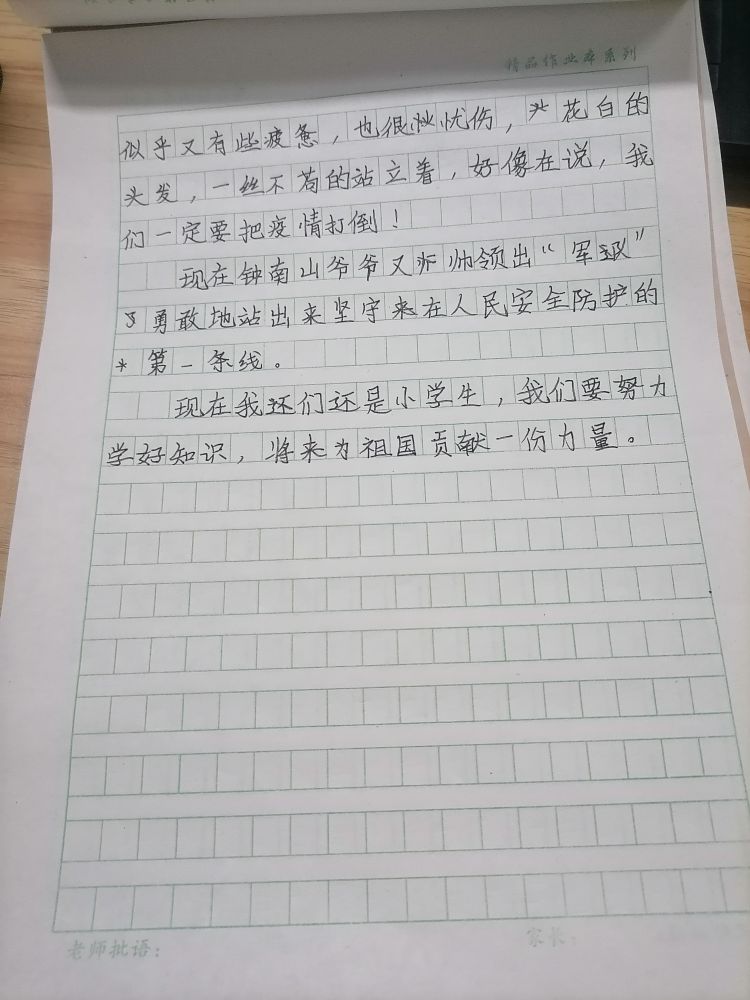 精品作业本系列
似乎又有些疲惫，也很忧伤，花白的
头发，一丝不苟的站立着，好像在说，我
们一定要把疫情打倒！
现在钟南山爷爷又帅领出“军队”
勇敢地站出来坚守来在人民安全防护的
第一条线。
现在我还们还是小学生，我们要努力
学好知识，将来为祖国贡献一份力量。
老师批语：
家长：